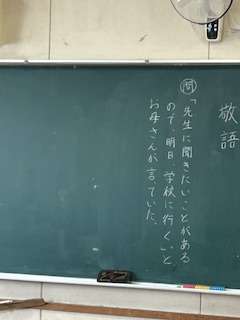 敬語
問「先生に聞きたいことがある
ので、明日、学校に行く」と
お母さんが言ていた。